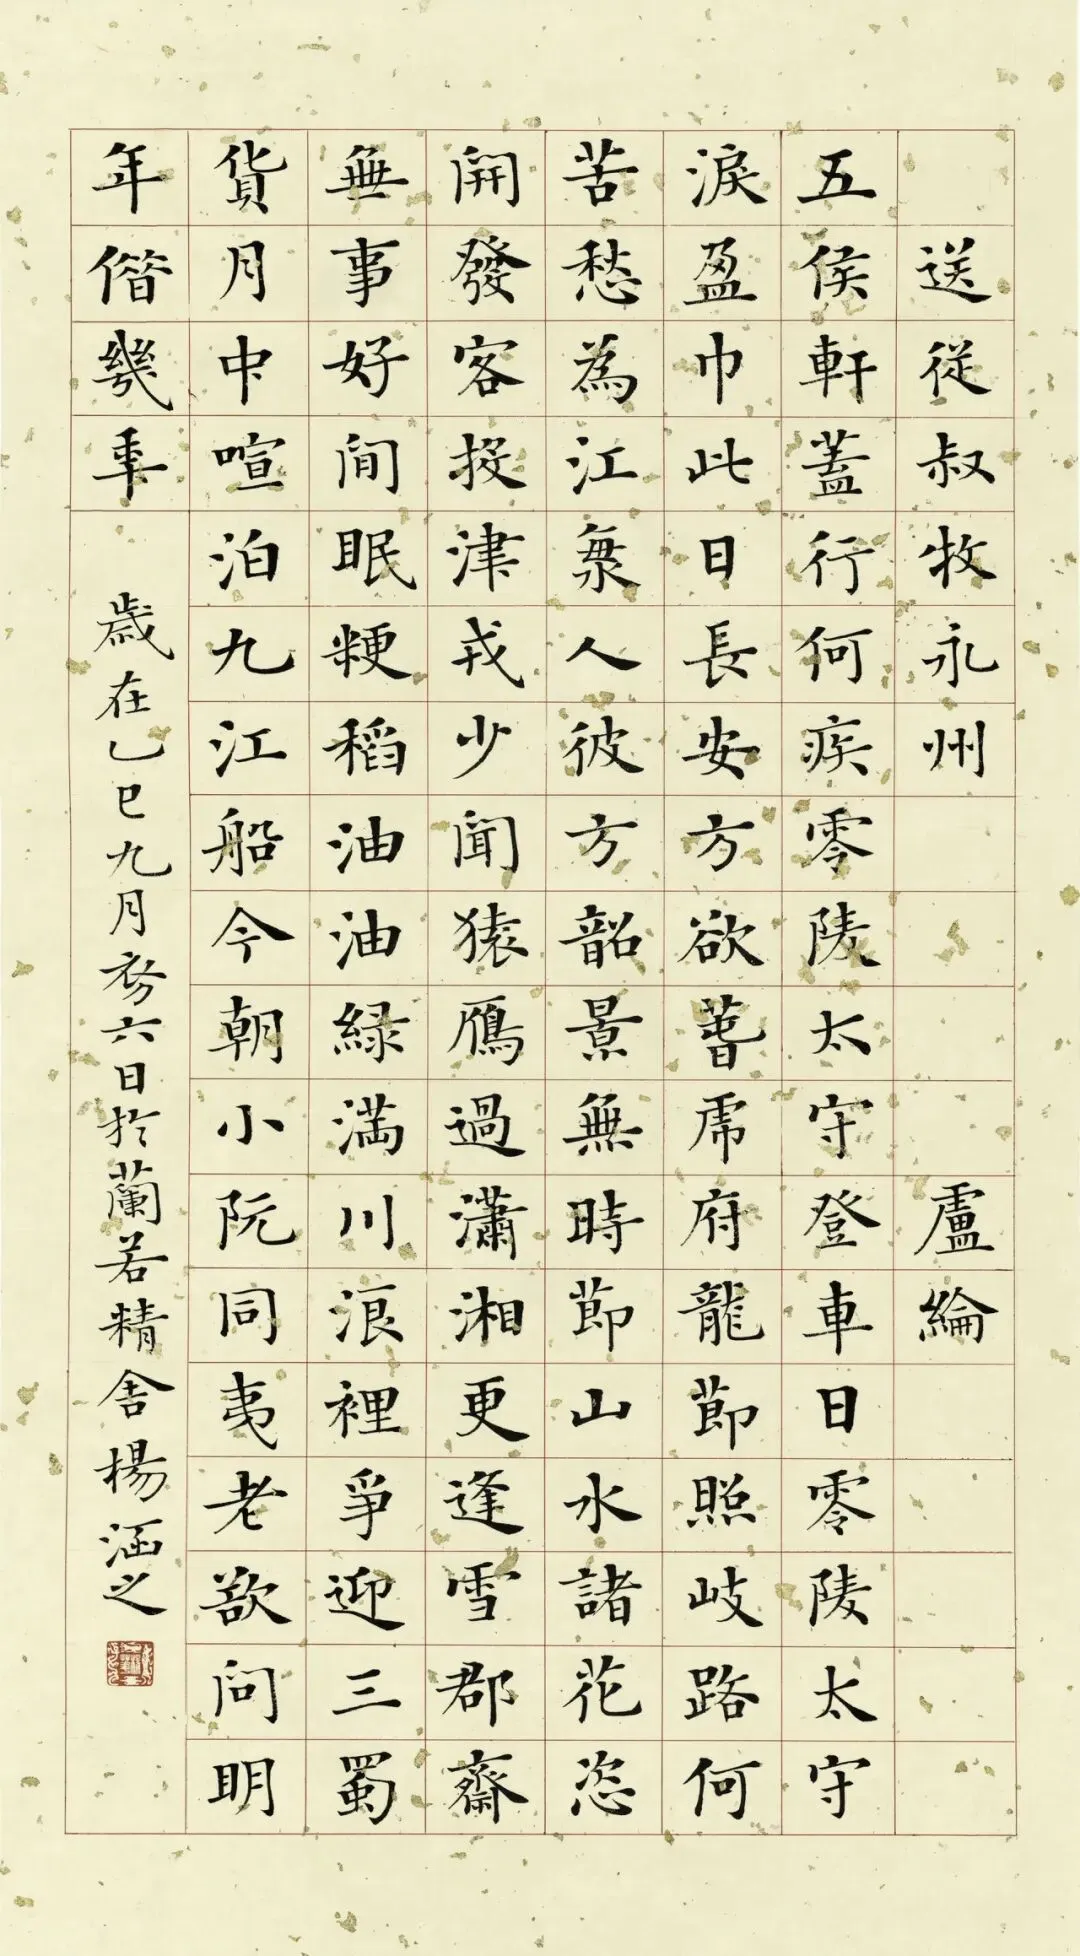 送從叔牧永州 盧綸
五侯軒蓋行何疾零陵太守登車日零陵太守
淚盈巾此日長安方欲萅虎府龍節照岐路何
苦愁為江海人彼方韶景無時節山水諸花恣
開發客投津戍少聞猿鴈過瀟湘更逢雪郡齋
無事好閒眠粳稻油油綠滿川浪裡爭迎三蜀
貨月中喧泊九江船今朝小阮同夷老欲問明
年偕幾年
歲在乙巳九月初六日於蘭若精舍楊涵之